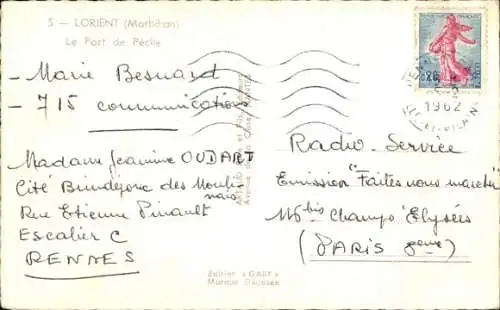 5 — LORIENT (Morbihan)
Le Port de Pêche
- Marie Besnard
- 715 communications
Madame Jeannine OUDART
Cité Brindejonc des Mouli-
nais
Rue Etienne Pinault
Escalier C
RENNES
Editeur « GABY »
Marque Déposée
1962
Radio-Service
Emission "Faites nous marcher"
116 bis Champs Elysées
(PARIS 8eme)